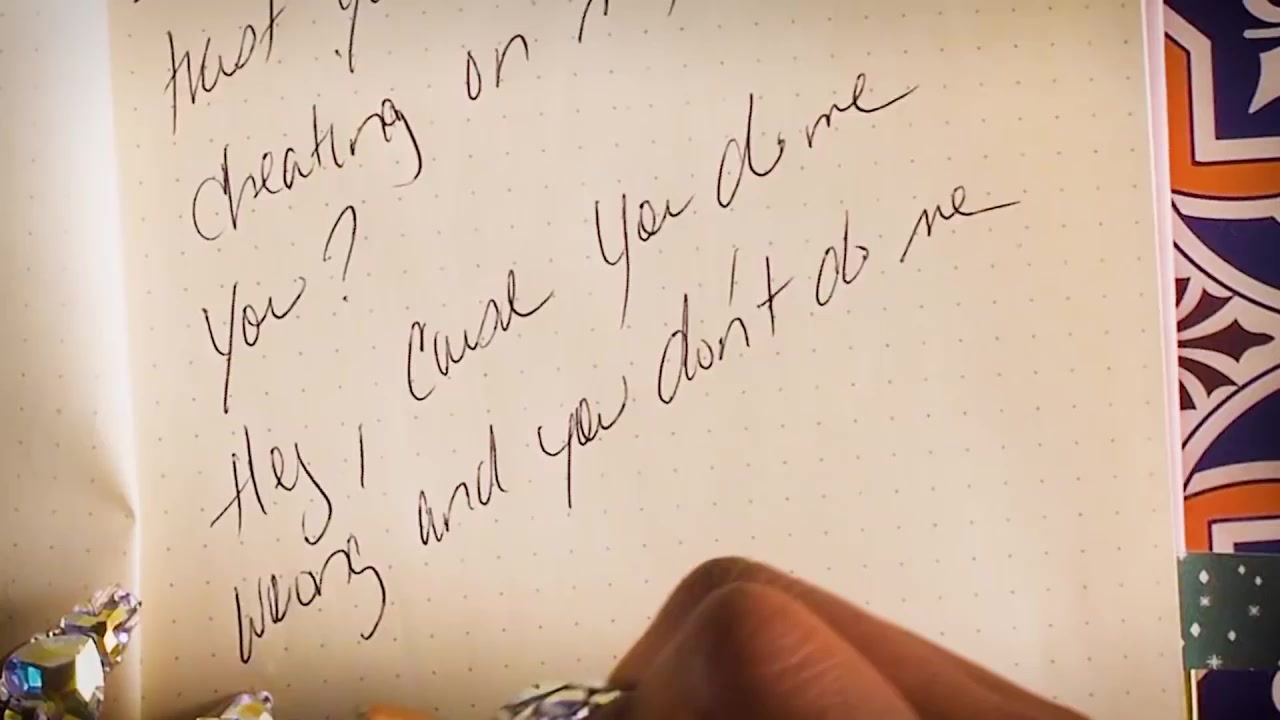 trust
cheating on
you?
Hey, cause you do me
wrong and you don't do me